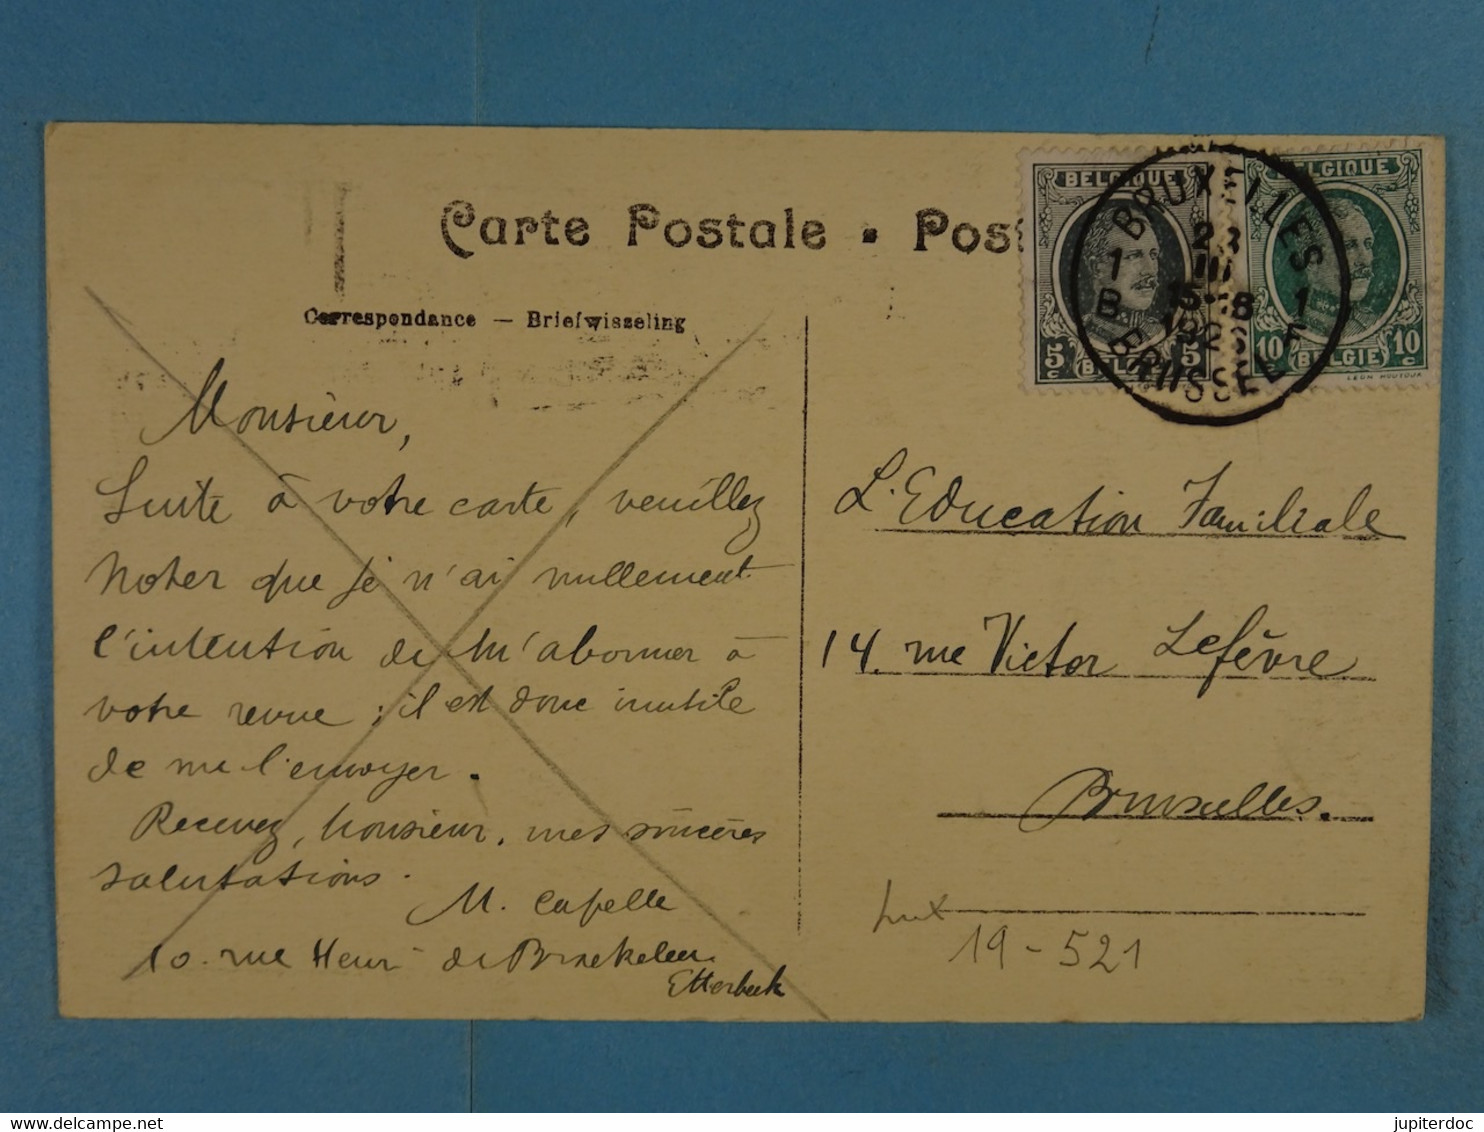 Carte Postale . Post
Correspondance — Briefwisseling
Monsieur,
Suite à votre carte, veuillez
noter que je n'ai nullement
l'intention de m'abonner à
votre revue ; il est donc inutile
de me l'envoyer.
Recevez, Monsieur, mes sincères
salutations.
M. Capelle
10. rue Henri de Braekeleer
Etterbeek
BELGIQUE
5 c 5 c
BELGIQUE
10 c 10 c
BELGIE
LEON HOUYOUX
BRUXELLES
1 1
B
23
III
15-18
BRUSSEL
L'Education Familiale
14. rue Victor Lefèvre
Bruxelles.
Lux
19-521
delcampe.net
jupiterdoc